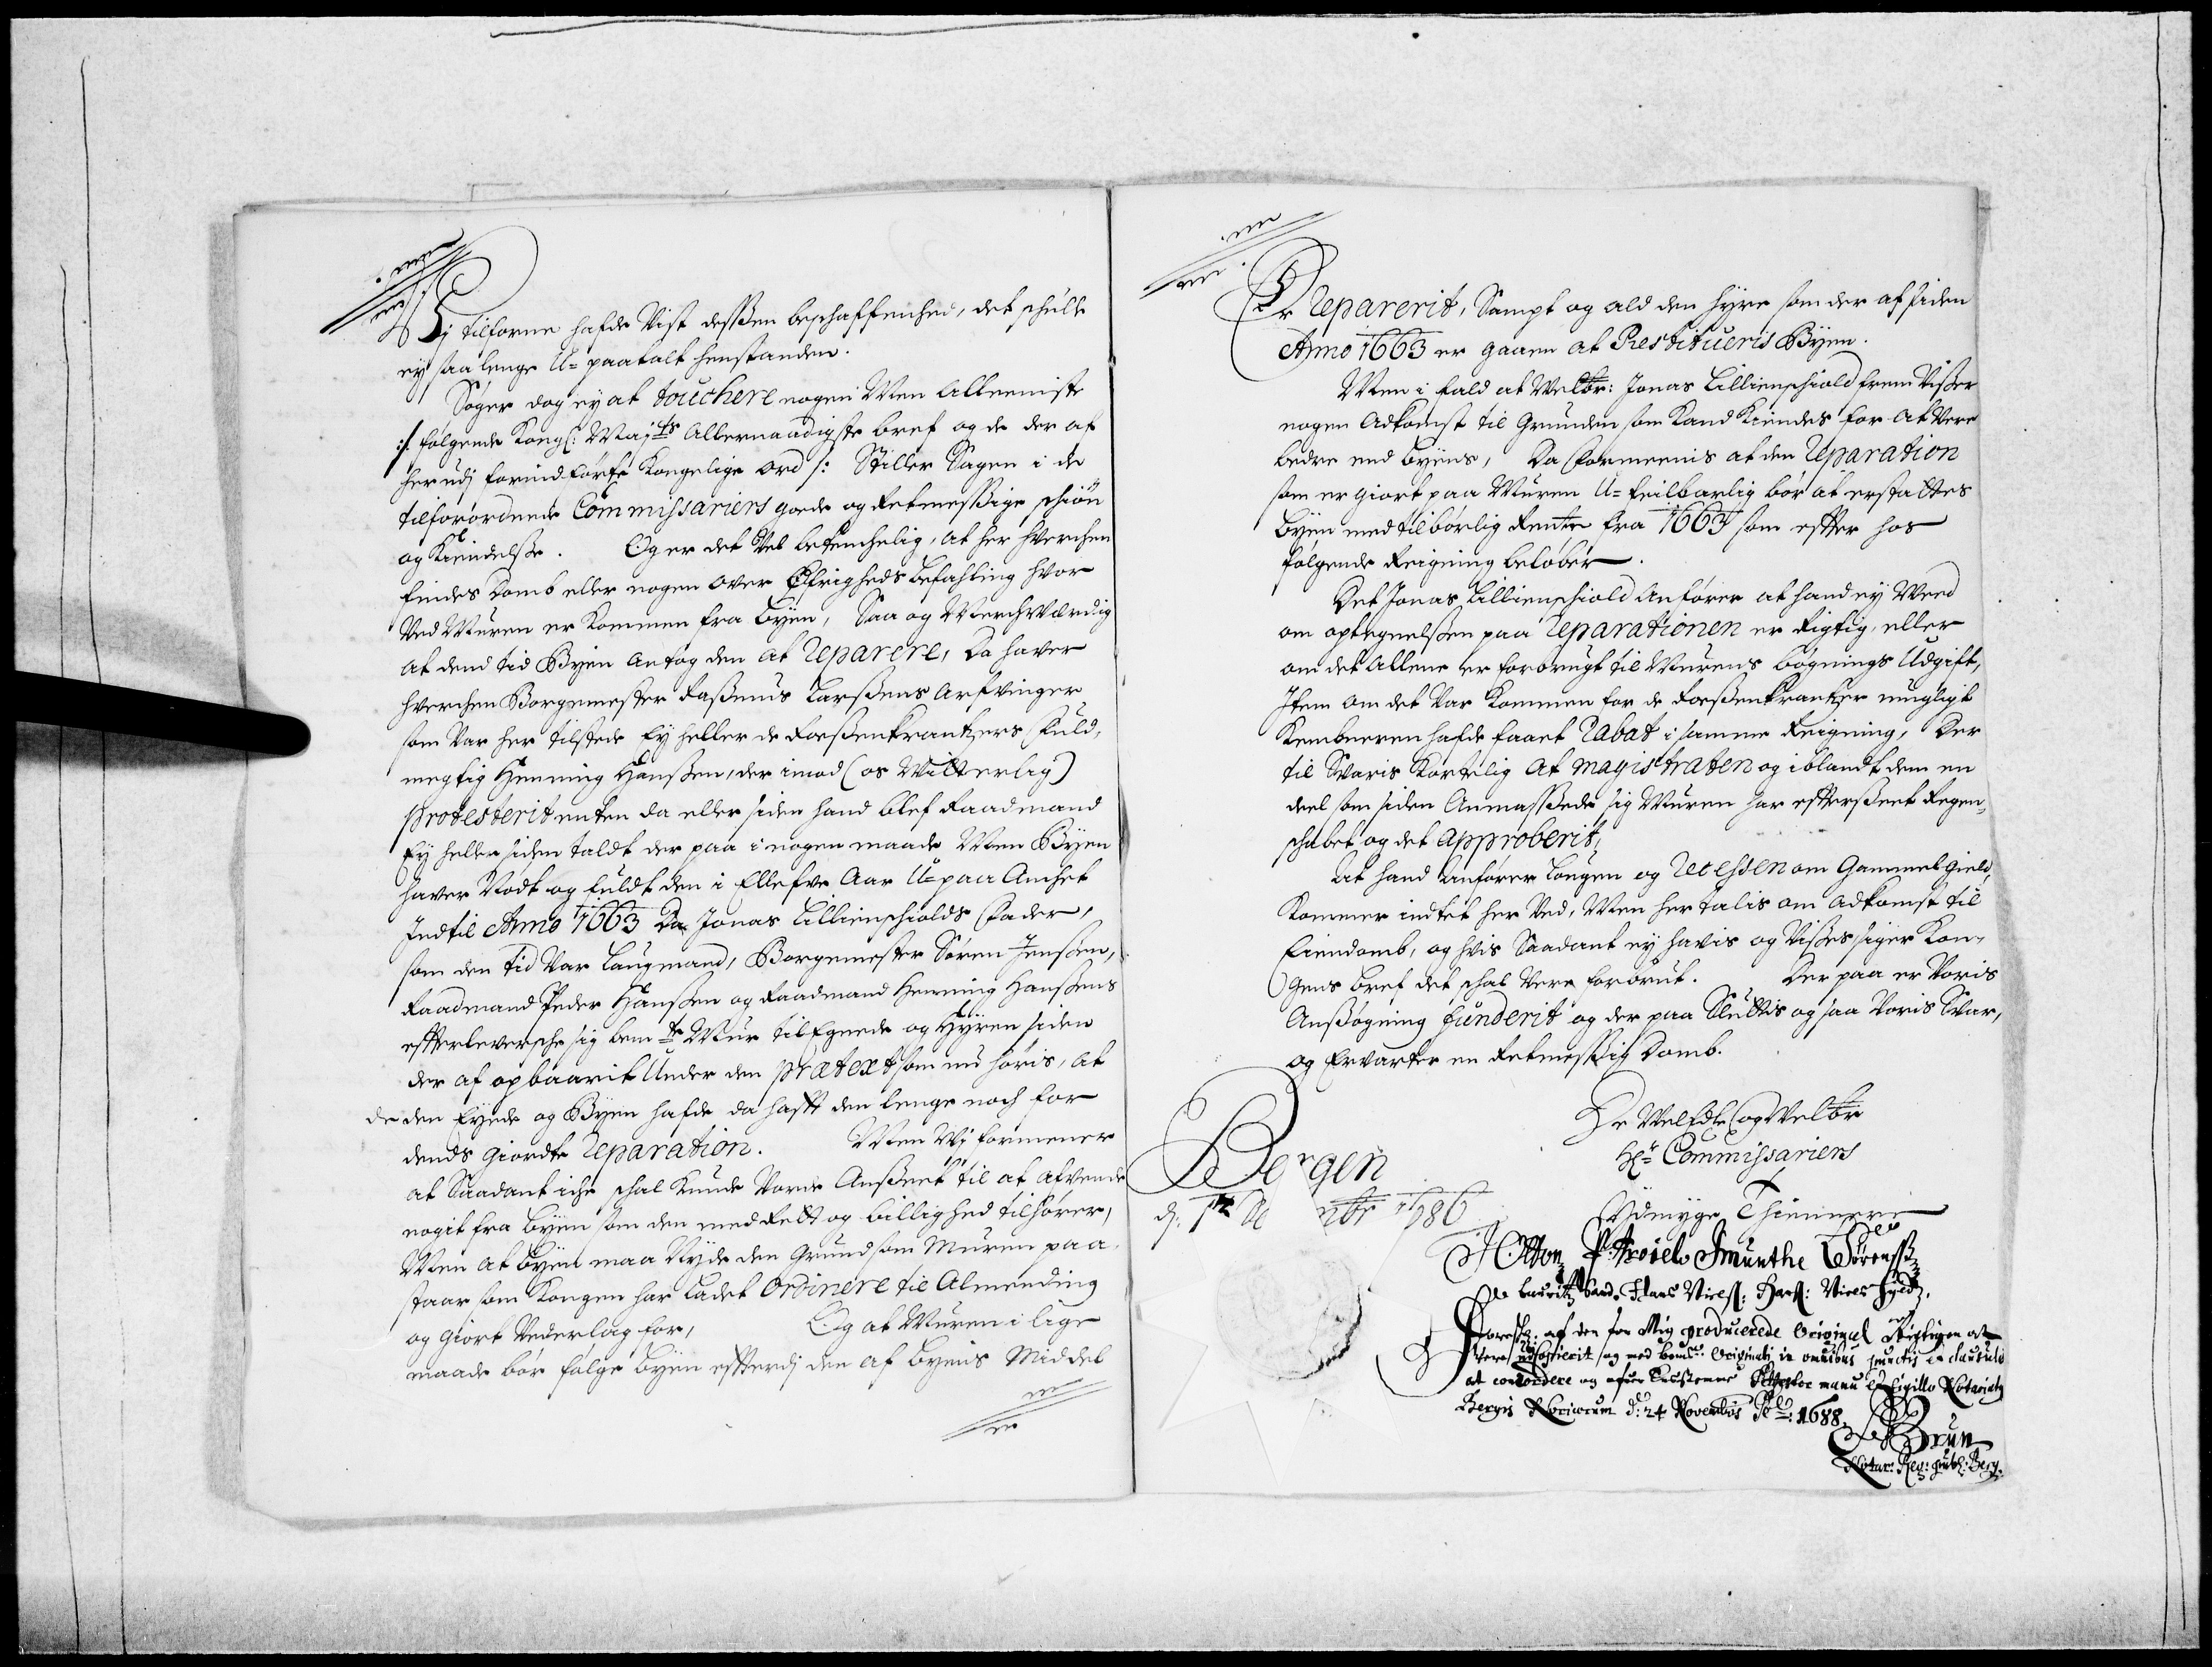 Vj tilforne hafde Vist desßen beschaffenhed, det schulle
ey saa lenge U=paatalt henstanden.
Søger dog ey at touchere nogen Men Alleeniste
:/: følgende Kongl: Maj:ts Allernaadigste bref og de der af
herudj forind førte Kongelige ord /: Stiller Sagen i de
tilforordnede Commissariers goede og Retmesßige schiøn
og Kiendelße. Og er det Vel betenchelig, at her hverchen
findes Domb eller nogen over Øfrigheds befahling hvor
Ved Muren er Kommen fra byen, Saa og Merchværdig
at dend tid Byen antog den at Reparere, Da haver
hverchen Borgemester Rasmus Larßens Arfvinger
som Var her tilstede Ey heller de Roßenkrantzers Fuld,
megtig Henning Hanßen, der imod (os Witterlig)
protesterit enten da eller siden hand blef Raadmand
Ey heller siden taldt der paa i nogen maade Men Byen
haver Nødt og fuldt den i Ellefve Aar U=paa Anchet
Indtil Anno 1663 Da Jonas Lillienschiolds Fader,
som den tid Var Laugmand, Borgemester Søren Jenßen,
Raadmand Peder Hanßen og Raadmand Henning Hanßens
efterleversche sig bem:te Muur tilEgnede og Hyren siden
der af opbaarit Under den prætext som nu høris, at
de den Eyede og Byen hafde da hafft den lenge noch for
dends giordte Reparation. Men Wj formener
at Saadant iche schal Kunde Vorde Anßeet til at afvende
nogit fra byen som den med Rett og billighed tilhører,
Men at byen maa Nyde den Grund som Muren paa
staar som Kongen har ladet Ordinere til Almending
og giort Vederlag for, Og at Muren i lige
maade bør følge byen efterdj den af byens Middel
Er Reparerit, Sampt og ald den hyre som der af siden
Anno 1663 er gaaen at Restitueris Byen.
Men i fald at Velbr: Jonas Lillienschiold frem Viser
nogen Adkomst til Grunden som Kand Kiendes for at Vere
bedre end byens, Da formeenis at den Reparation
som er giort paa Muren U=feilbarlig bør at erstattes
byen med tilbørlig Rente fra 1663 som efter hos
følgende Reigning beløber.
Det Jonas Lillienschiold Anfører at hand ey Weed
om optegnelßen paa Reparationen er Rigtig, eller
om det Allene er forbrugt til Murens bøgnings Udgift,
Item om det Var Kommen for de Roßenkrantzer mugligt
Kembneren hafde faaet Rabat i samme Reigning, Der
til Svaris Kortelig at Magistraten og iblandt dem en
deel som siden Anmasßede sig Muren har efterßeet Regen,
schabet og det Approberit,
At hand Anfører Lougen og Recessen om Gammel gield,
Kommer indtet her Ved, Men her talis om Adkomst til
Eiendomb, og hvis Saadant ey havis og Vises siger Kon,
gens bref det schal Vere forbrut. Der paa er Voris
Ansßøgning funderit og der paa Sluttis og saa Voris Svar,
og Ervarter en Retmesßig Domb.
De Velædle og Velbr
Hr: Commissariers
Ydmyge Thiennere
Bergen
d: 1 De br 1686
P: Troiel Smunthe Sørenss:
Lauritz Hans Niels: Niels
af den for Mig producerede Original Rigtigen at
vere udCopierit og med bemte Originali in omnibus punctis et clausulis
at concordere manu et Sigillo Notariatus
Bergis Noricorum d: 24 Novembris Ao: 1688.
Brun
Notar: Reg: Publ: Berg: